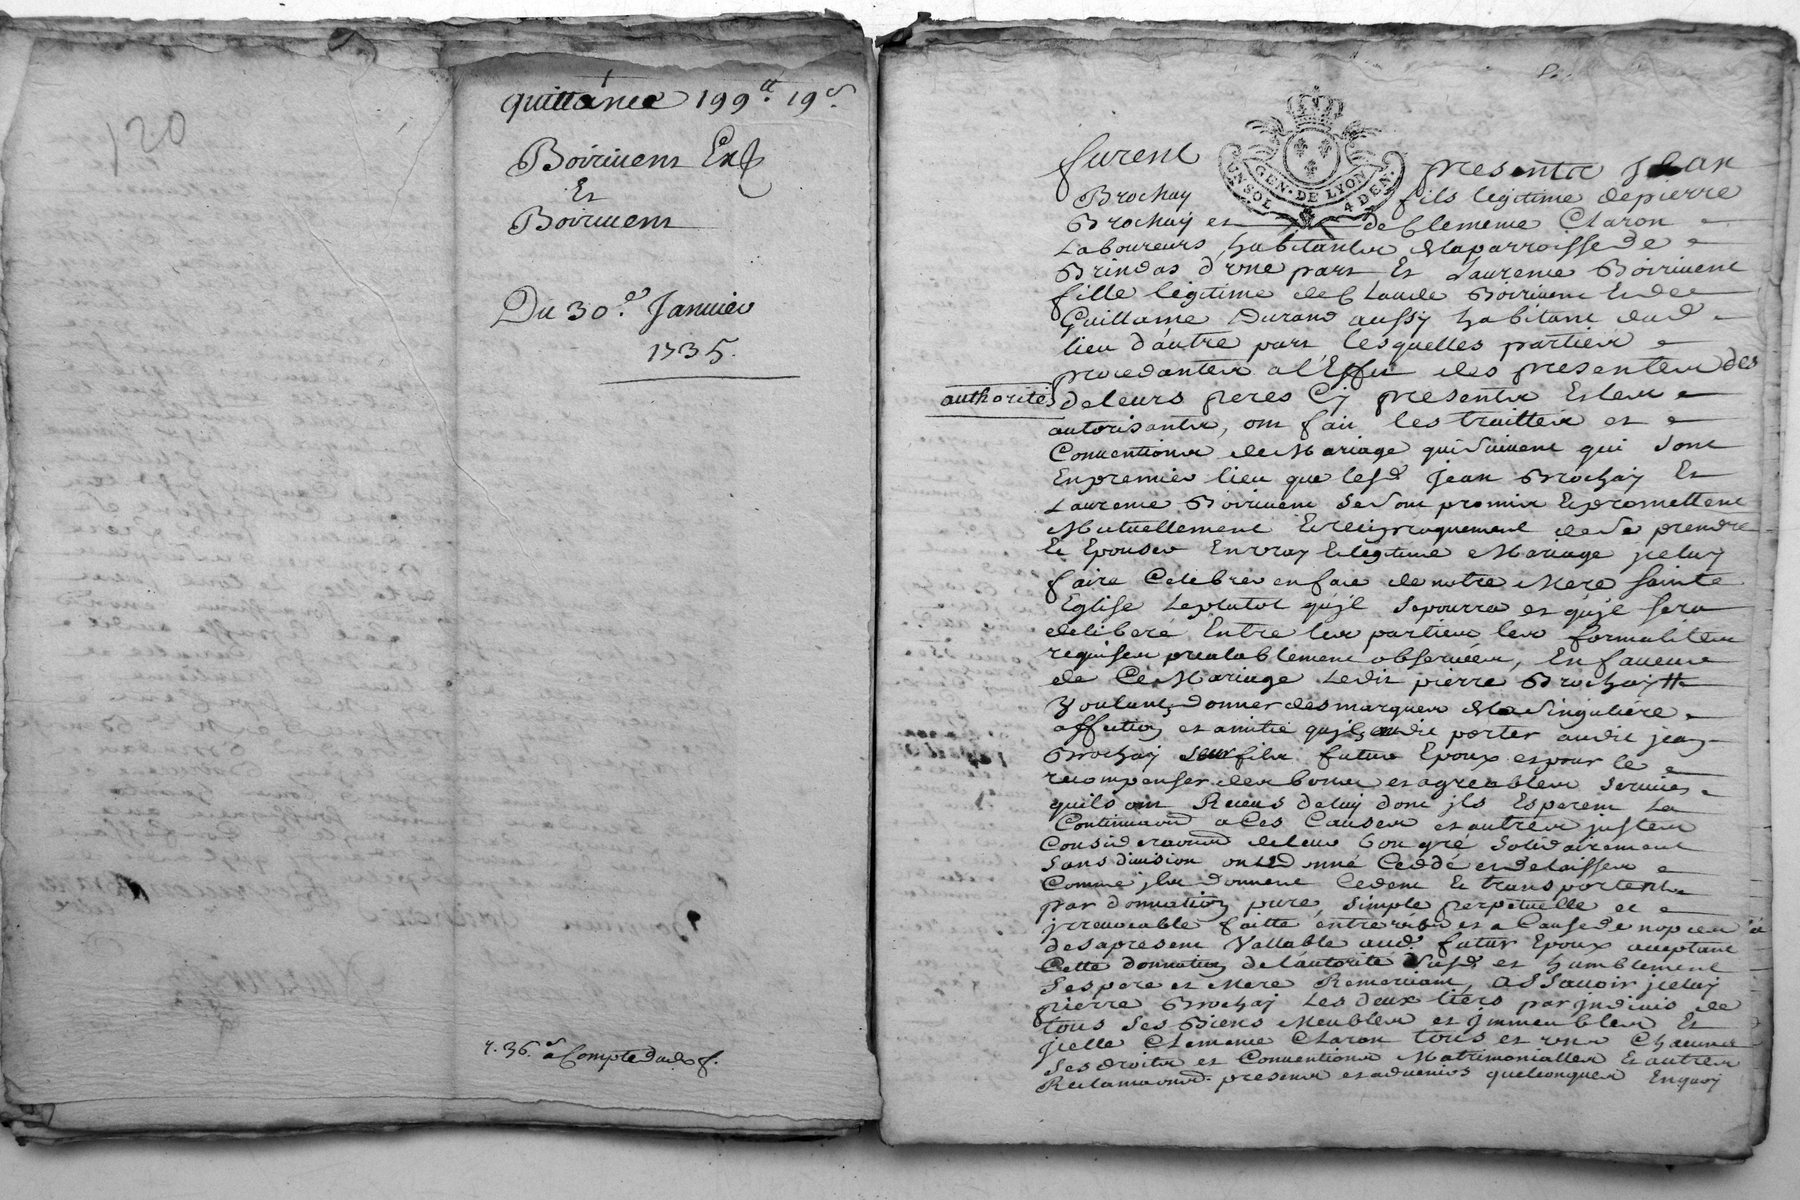 120
quittance 199ᵗᵗ. 19ˢ.
Boiriuent
Et
Boiriuent
Du 30.ᵉ Januier
1735.
r. 36.ˢ a Compte dud. f.
furent presentz Jean
GEN. DE LYON
UN SOL 4 DEN.
Brochay fils legitime de pierre
Brochay et de Clemence Claron
Laboureurs habitantz de la parroisse de
Brindas d'vne part Et Laurence Boiriuent
fille legitime de Claude Boiriuent Et de
Guillame Durand aussy habitant dud
lieu d'autre part lesquelles parties
procedantes a l'Effet des presentes des
authorités
de leurs peres Cy presentz Et les
autorisantz, ont fait les traittes et
Conuentions de Mariage qui suiuent qui sont
En premier lieu que lesd Jean Brochay Et
Laurence Boiriuent se sont promis Et promettent
Mutuellement Et reciproquement de se prendre
Et Epouser En vray Et legitime Mariage jceluy
faire Celebrer en face de notre Mere sainte
Eglise Le plutot qu'jl se pourra et qu'jl sera
deliberé Entre les parties les formalites
requises prealablement obseruées, En faueur
de Ce Mariage Ledit pierre Brochay
Voulant donner des marques de la singuliere
affection et amitié qu'jl dit porter audit jean
Brochay fils futur Epoux et pour le
recompenser des bons et agreables seruices
quils ont Receus de luy dont jls Esperent La
Continuaon a Ces Causes et autres justes
Consideraons de leur bon gré solidairement
sans diuision ont Donné Ceddé et delaissé
Comme jls Donnent Cedent Et transportent
par donnation pure, simple perpetuelle et
jrreuocable faitte entre vifs et a Cause de nopces
des a present Vallable aud. futur Epoux acceptant
Cette donnation de l'autorité susd et humblement
ses pere et mere Remerciant, a Sauoir jceluy
pierre Brochay Les deux tiers par jndiuis de
tous ses Biens Meubles et jmmeubles Et
jcelle Clemence Claron tous et vns Chacuns
ses droits et Conuentions Matrimonialles Et autres
Reclamaons presens et aduenirs quelconques En quoy